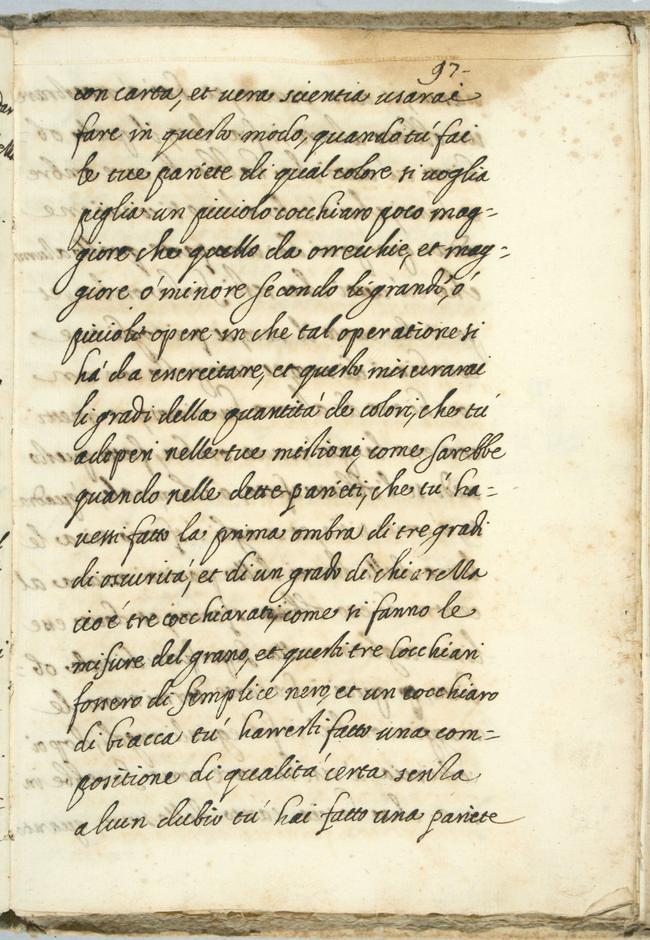 97-
con certa, et vera scientia usarai
fare in questo modo, quando tú fai
le tue pariete di qual colore si uoglia
piglia un picciolo cocchiaro poco mag=
giore che quello da orrecchie, et mag=
giore ó minore secondo li grandi, ó
piccioli opere in che tal operatione si
há da exercitare, et questo misurarai
li gradi della quantitá de colori, che tú
adoperi nelle tue mistioni, come sarebbe
quando nelle dette parieti, che tú ha=
uessi fatto la prima ombra di tre gradi
di oscuritá, et di un grado di chiarella
cioé tre cocchiarati, come si fanno le
misure del grano, et questi tre cocchiari
fossero di semplice nero, et un cocchiaro
di biacca tú harresti fatto una com=
positione di qualitá certa senza
alcun dubio tú hai fatto una pariete